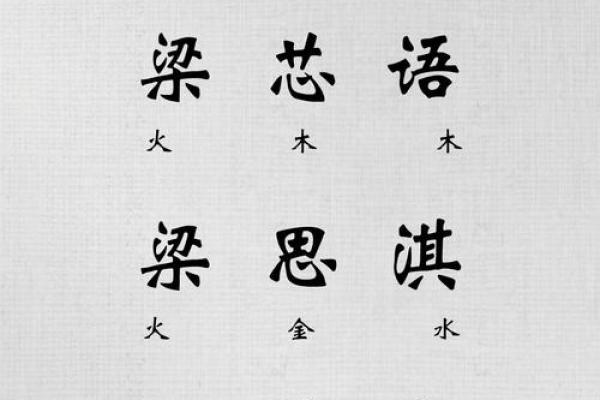 梁芯语
火木木
梁思淇
火金水